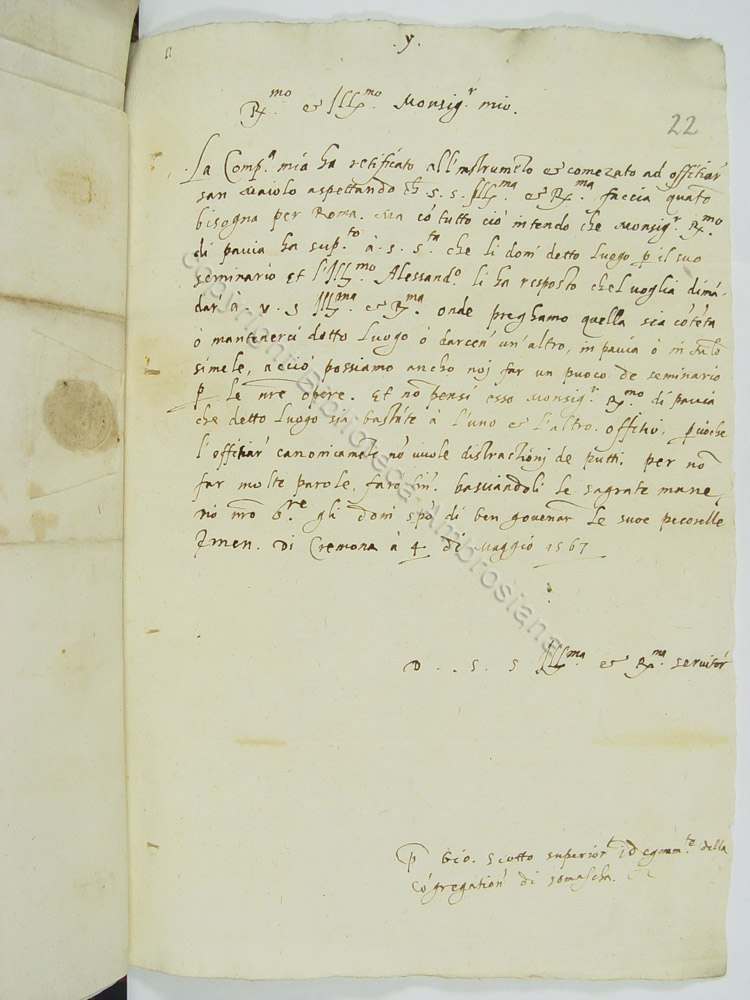 .y.
R.mo et Ill.mo Monsig.r mio.
22
La Comp.a mia ha retificato all'instrumẽto et comezato ad offitiar
san Maiolo aspettando ch s. s. Ill.ma et R.ma faccia quãto
bisogna per Roma. Ma cõ tutto ciò intendo che Monsig.r R.mo
di pavia ha sup.to à s. s.ta che li doni detto luogo p il suo
seminario Et l'Ill.mo Alessand.o li ha resposto chel voglia dimã-
dar a v. s Ill.ma et R.ma onde preghamo quella sia cõtẽta
ò mantenerci detto luogo ò darcen' un'altro, in pavia ò in
simele, acciò possiamo ancho noj far un puoco de seminario
p le nre opere. Et nõ pensi esso Monsig.r R.mo di pavia
che detto luogo sia bastãte à l'uno et l'altro offitio, p cioche
l'offitiar canonicamẽte nõ vuole distrationj de putti. per nõ
far molte parole, faro fin. basciandoli le sagrate mane,
nro gli doni spõ di ben governar le sue pecorelle
Amen. Di Cremona à 4 di Maggio 1567
D. s. s Ill.ma et R.ma servitor
p Gio. Scotto superior idegnam.te della
cõgregation di somascha.
copyright Biblioteca Ambrosiana